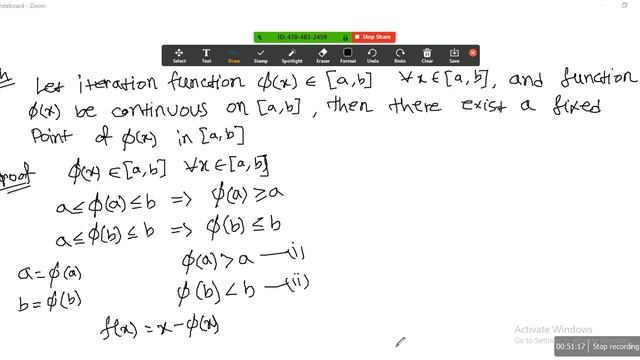 niteboard - Zoom
ID: 470-481-2459 Stop Share
Select Text Draw Stamp Spotlight Eraser Format Undo Redo Clear Save
Let iteration function φ(x) ∈ [a,b] ∀x∈[a,b], and function
φ(x) be continuous on [a,b], then there exist a fixed
Point of φ(x) in [a,b]
roof φ(x) ∈ [a,b] ∀x∈[a,b]
a ≤ φ(a) ≤ b => φ(a) ≥ a
a ≤ φ(b) ≤ b => φ(b) ≤ b
φ(a) > a —(i)
a = φ(a)
φ(b) < b —(ii)
b = φ(b)
f(x) = x - φ(x)
Activate Windows
Go to Settings to activate Windows.
00:51:17 Stop recording